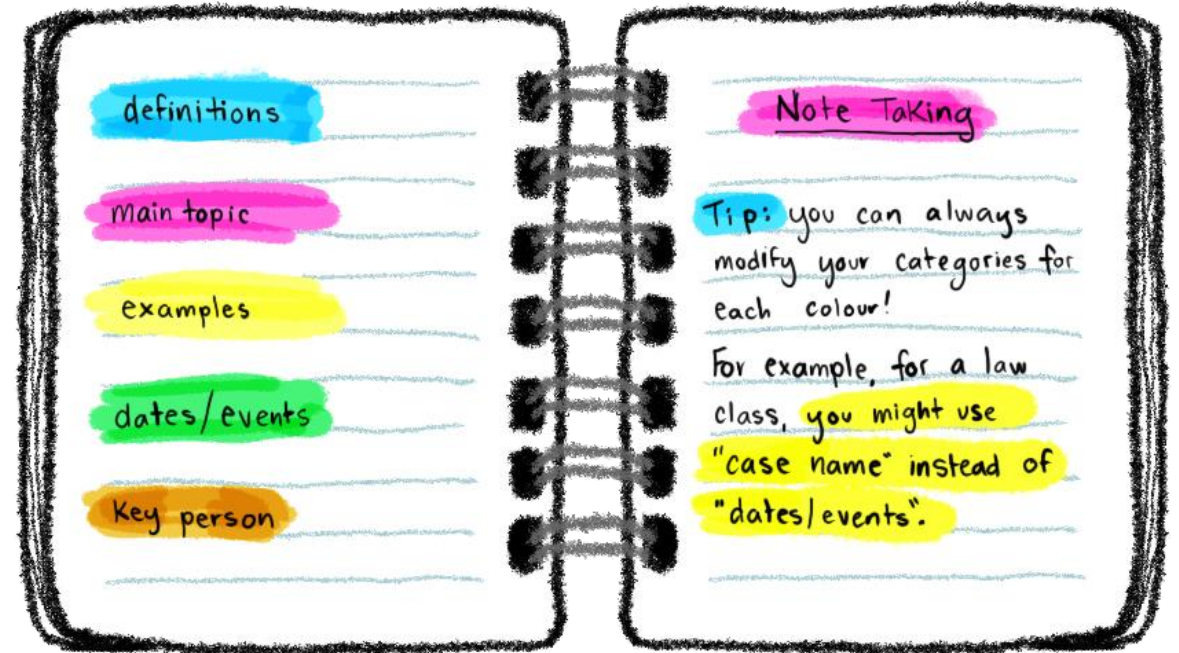 definitions
main topic
examples
dates/events
key person
Note Taking
Tip: you can always
modify your categories for
each colour!
For example, for a law
class, you might use
"case name" instead of
"dates/events".